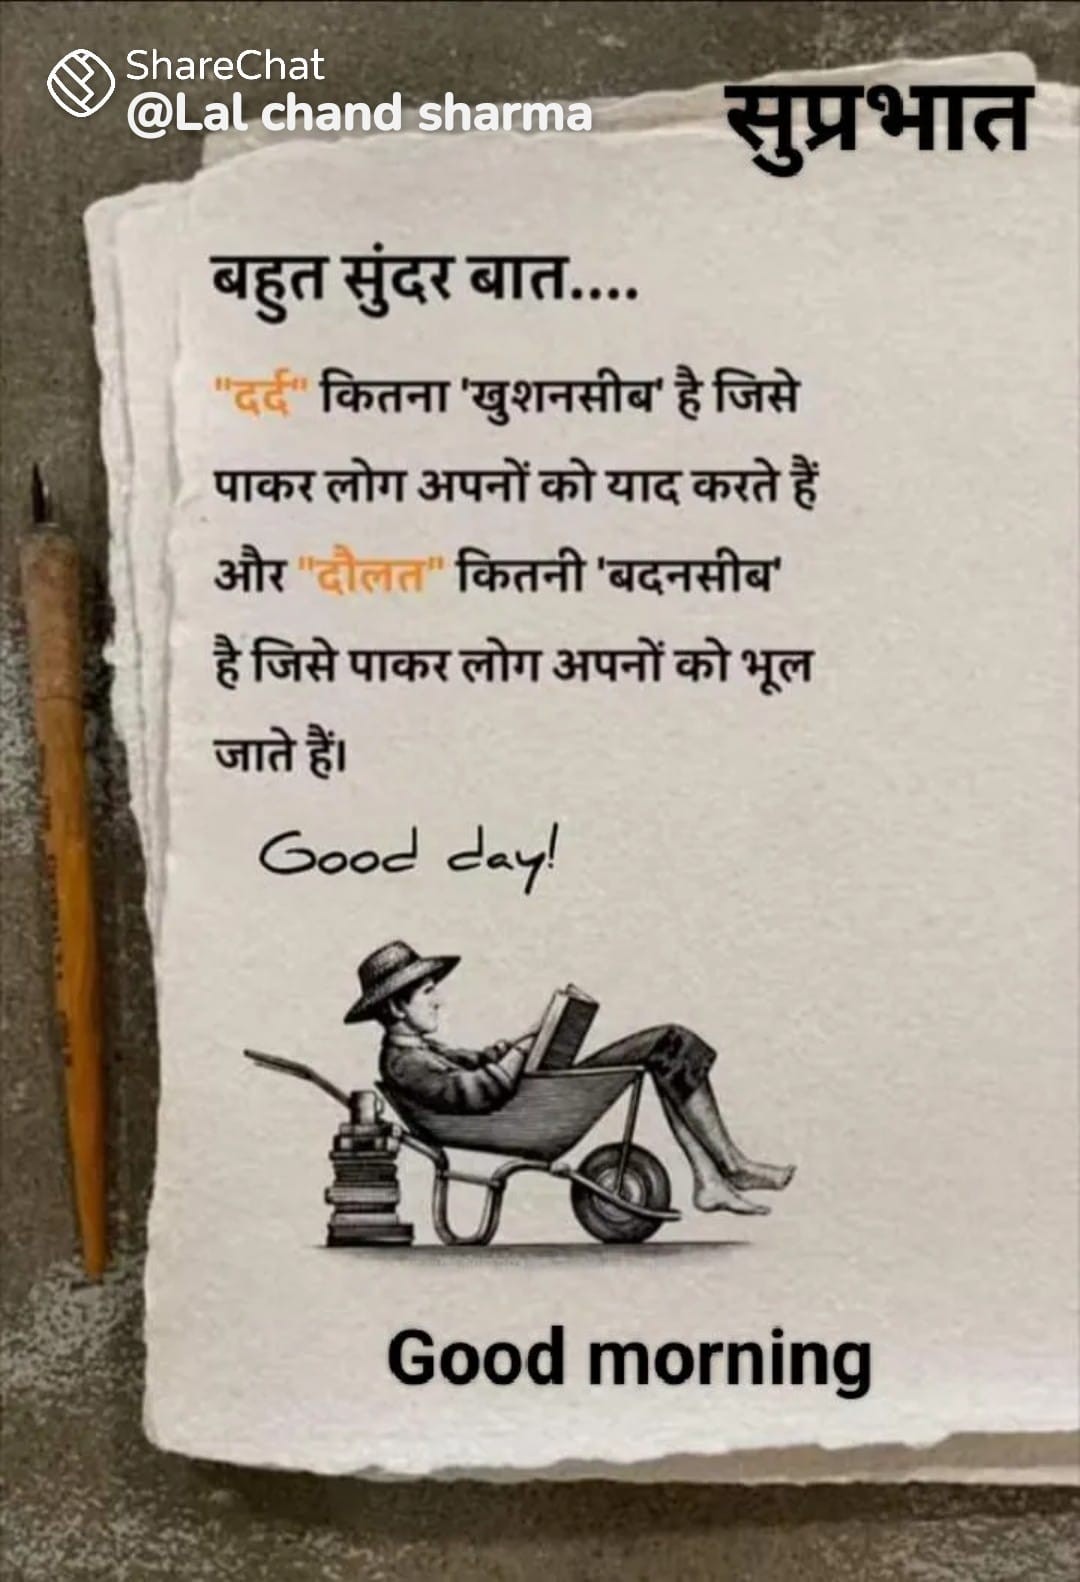 ShareChat
@Lal chand sharma
सुप्रभात
बहुत सुंदर बात....
"दर्द" कितना 'खुशनसीब' है जिसे
पाकर लोग अपनों को याद करते हैं
और "दौलत" कितनी 'बदनसीब'
है जिसे पाकर लोग अपनों को भूल
जाते हैं।
Good day!
Good morning